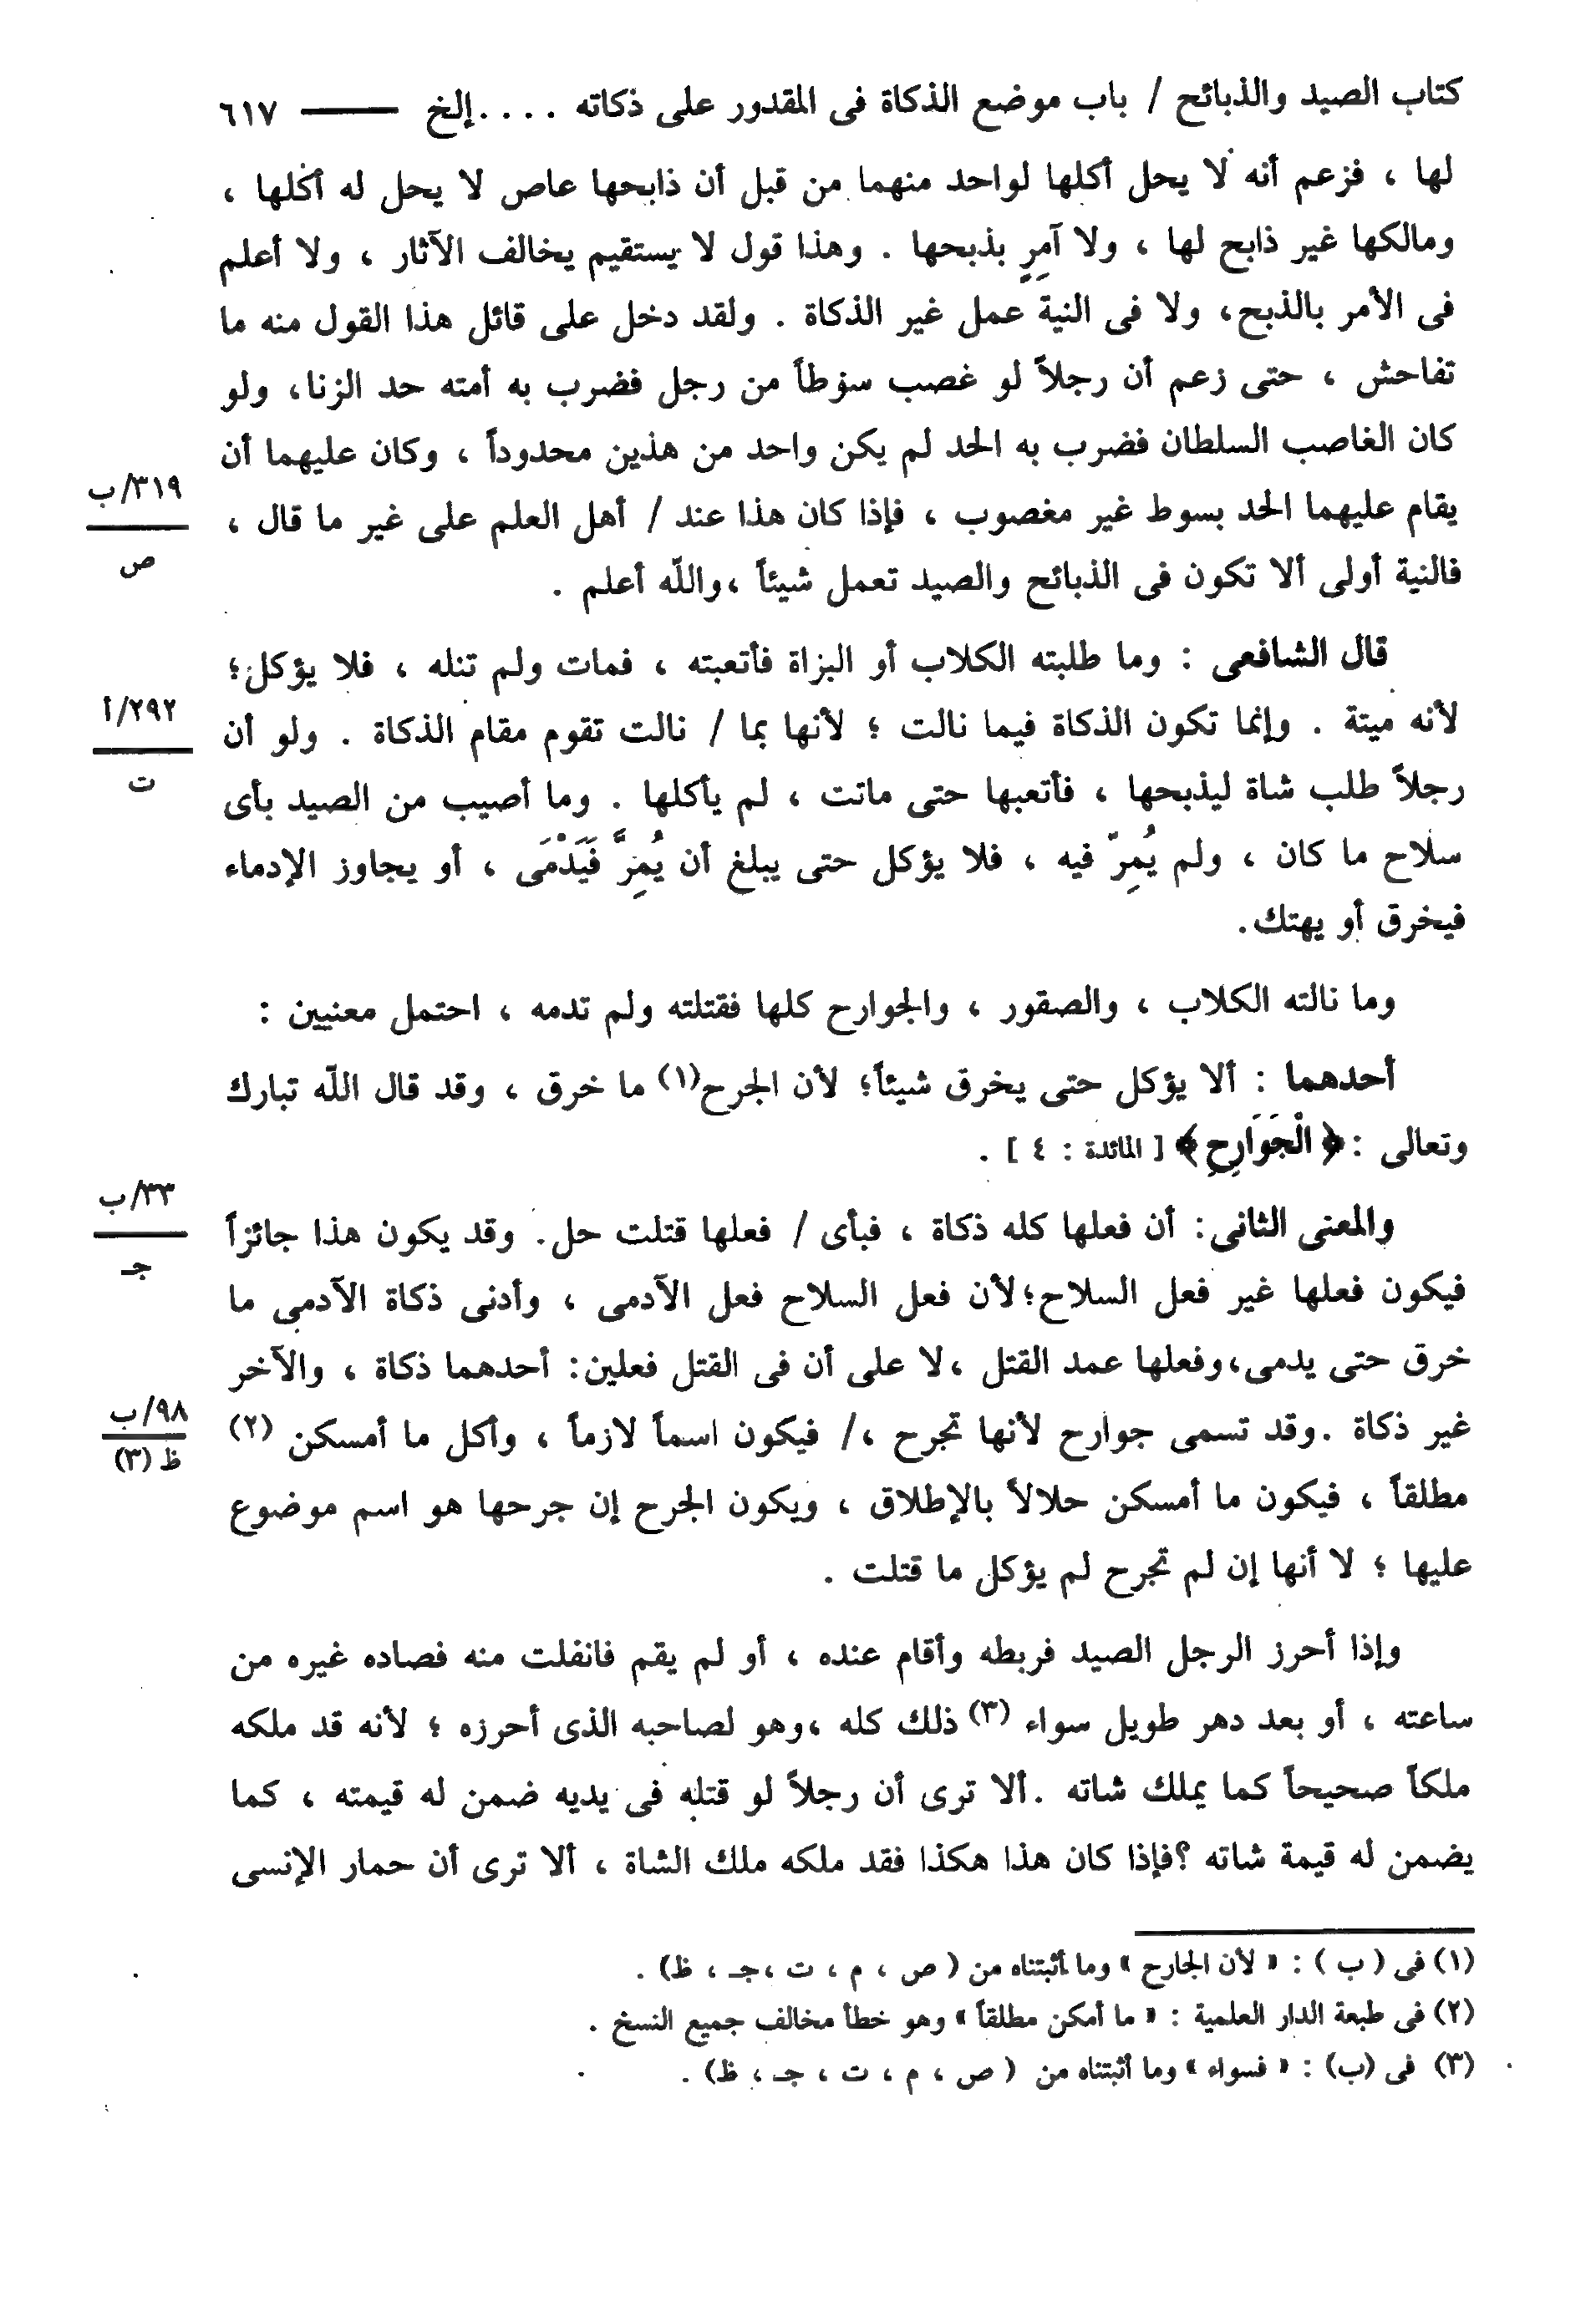 كتاب الصيد والذبائح / باب موضع الذكاة فى المقدور على ذكاته . . . . إلخ ـــــــ ٦١٧
لها ، فزعم أنه لا يحل أكلها لواحد منهما من قبل أن ذابحها عاص لا يحل له أكلها ،
ومالكها غير ذابح لها ، ولا آمِرٍ بذبحها . وهذا قول لا يستقيم يخالف الآثار ، ولا أعلم
فى الأمر بالذبح، ولا فى النية عمل غير الذكاة . ولقد دخل على قائل هذا القول منه ما
تفاحش ، حتى زعم أن رجلاً لو غصب سوطاً من رجل فضرب به أمته حد الزنا، ولو
كان الغاصب السلطان فضرب به الحد لم يكن واحد من هذين محدوداً ، وكان عليهما أن
يقام عليهما الحد بسوط غير مغصوب ، فإذا كان هذا عند / أهل العلم على غير ما قال ،
٣١٩/ب
ص
فالنية أولى ألا تكون فى الذبائح والصيد تعمل شيئاً ،والله أعلم .
قال الشافعى : وما طلبته الكلاب أو البزاة فأتعبته ، فمات ولم تنله ، فلا يؤكل؛
لأنه ميتة . وإنما تكون الذكاة فيما نالت ؛ لأنها بما / نالت تقوم مقام الذكاة . ولو أن
٢٩٢/أ
ت
رجلاً طلب شاة ليذبحها ، فأتعبها حتى ماتت ، لم يأكلها . وما أصيب من الصيد بأى
سلاح ما كان ، ولم يُمِرّ فيه ، فلا يؤكل حتى يبلغ أن يُمِرَّ فَيَدْمَى ، أو يجاوز الإدماء
فيخرق أو يهتك.
وما نالته الكلاب ، والصقور ، والجوارح كلها فقتلته ولم تدمه ، احتمل معنيين :
أحدهما : ألا يؤكل حتى يخرق شيئاً؛ لأن الجرح(١) ما خرق ، وقد قال الله تبارك
وتعالى : ﴿ الْجَوَارِحِ ﴾ [ المائدة : ٤ ] .
والمعنى الثانى: أن فعلها كله ذكاة ، فبأى / فعلها قتلت حل. وقد يكون هذا جائزاً
٣٣/ب
جـ
فيكون فعلها غير فعل السلاح؛لأن فعل السلاح فعل الآدمى ، وأدنى ذكاة الآدمى ما
خرق حتى يدمى،وفعلها عمد القتل ،لا على أن فى القتل فعلين: أحدهما ذكاة ، والآخر
غير ذكاة .وقد تسمى جوارح لأنها تجرح ،/ فيكون اسماً لازماً ، وأكل ما أمسكن (٢)
٩٨/ب
ظ (٣)
مطلقاً ، فيكون ما أمسكن حلالاً بالإطلاق ، ويكون الجرح إن جرحها هو اسم موضوع
عليها ؛ لا أنها إن لم تجرح لم يؤكل ما قتلت .
وإذا أحرز الرجل الصيد فربطه وأقام عنده ، أو لم يقم فانفلت منه فصاده غيره من
ساعته ، أو بعد دهر طويل سواء (٣) ذلك كله ،وهو لصاحبه الذى أحرزه ؛ لأنه قد ملكه
ملكاً صحيحاً كما يملك شاته .ألا ترى أن رجلاً لو قتله فى يديه ضمن له قيمته ، كما
يضمن له قيمة شاته ؟فإذا كان هذا هكذا فقد ملكه ملك الشاة ، ألا ترى أن حمار الإنسى
(١) فى ( ب ) : « لأن الجارح » وما أثبتناه من ( ص ، م ، ت ،جـ ، ظ) .
(٢) فى طبعة الدار العلمية : « ما أمكن مطلقاً » وهو خطأ مخالف جميع النسخ .
(٣) فى (ب) : « فسواء » وما أثبتناه من ( ص ، م ، ت ، جـ ، ظ) .